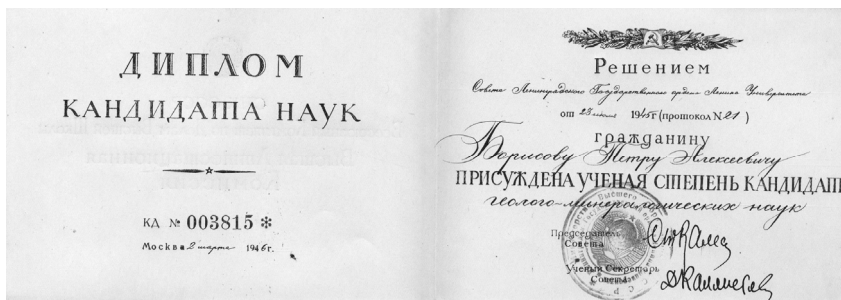 ДИПЛОМ
КАНДИДАТА НАУК
КД № 003815 *
Москва 2 марта 1946 г.
Решением
Совета Ленинградского Государственного ордена Ленина Университета
от 23 1945 г (протокол № 21)
гражданину
Борисову Петру Алексеевичу
ПРИСУЖДЕНА УЧЕНАЯ СТЕПЕНЬ КАНДИДАТ
геолого-минералогических наук
Председатель
Совета
Ученый Секретарь
Совета